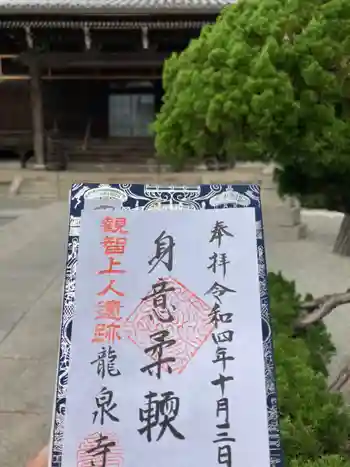 奉拝令和四年十月三日
身意柔軟
観智上人遺跡
龍泉寺